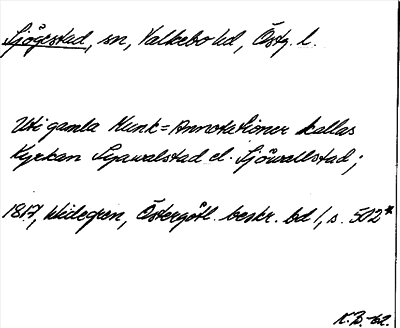 Sjögestad, sn, Valkebo hd, Östg. l.
Uti gamla Munk=Annotationer kallas
Kyrkan Syawalstad el. Sjöwallstad;
1817, Widegren, Östergötl. beskr. bd 1, s. 502*
K.B.-62.